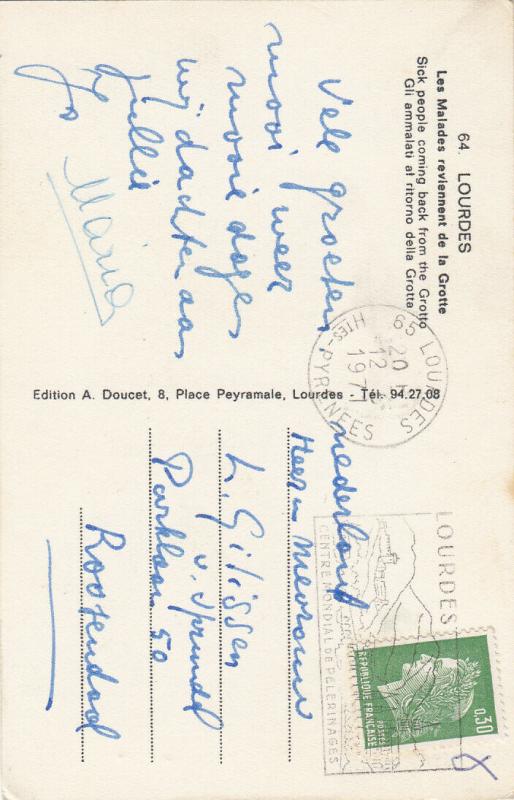 64. LOURDES
Les Malades reviennent de la Grotte
Sick people coming back from the Grotto
Gli ammalati al ritorno della Grotta
Vele groeten.
mooi weer
mooie dagen
wij dachten aan
jullie
Jo
Maria
Edition A. Doucet, 8, Place Peyramale, Lourdes - Tél. 94.27.08
65 LOURDES
20 H
12 - 7
1971
HTES-PYRENEES
LOURDES
CENTRE MONDIAL DE PELERINAGES
REPUBLIQUE FRANÇAISE
POSTES
0,30
nederland
Heer en Mevrouw
L. Gilissen
v. Sprundel
Parklaan 50
Roosendaal